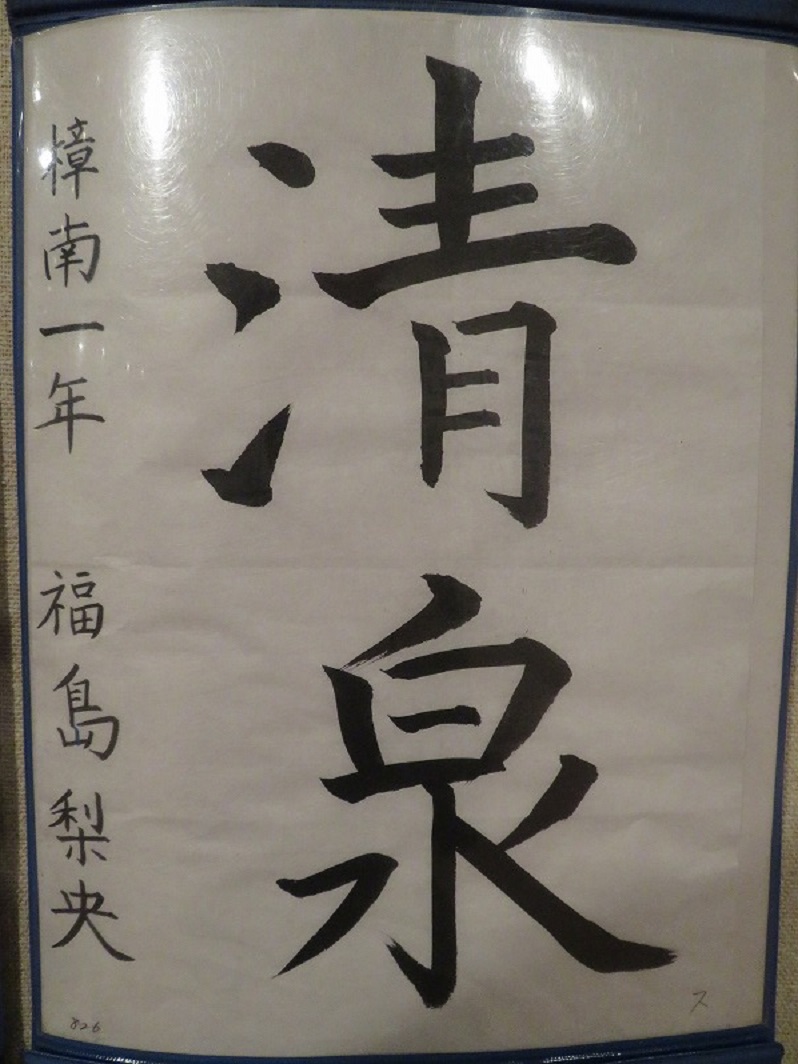 清泉
樟南一年 福島梨央
826
ス